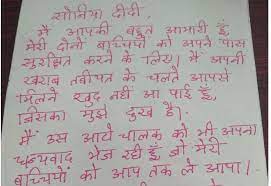 सोनिया दीदी,
मैं आपकी बहुत आभारी हूँ,
मेरी दोनों बच्चियों को अपने पास
सुरक्षित करने के लिए। मैं अपनी
खराब तबीयत के चलते आपसे
मिलने खुद नहीं आ पाई हूँ,
जिसका मुझे दुख है।
मैं उस आटो चालक को भी अपना
धन्यवाद भेज रही हूँ, जो मेरी
बच्चियों को आप तक ले आया।